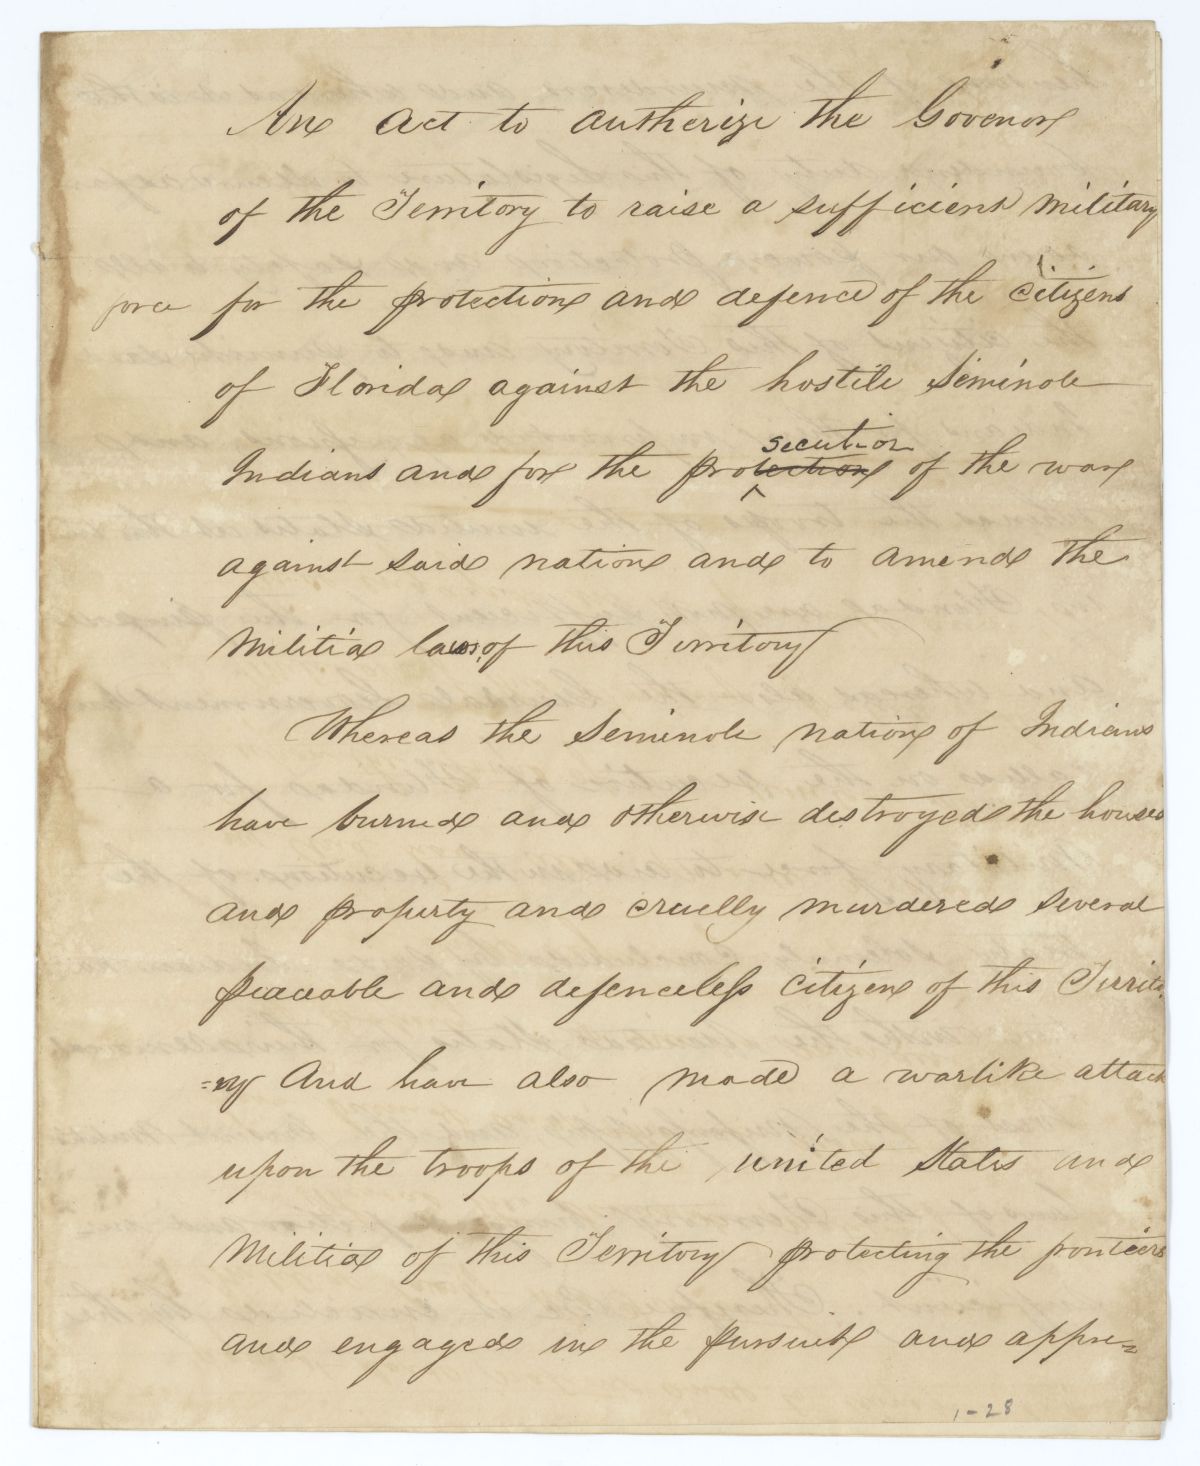 An act to autherize the Govenor
of the Territory to raise a sufficient military
force for the protection and defence of the citizens
of Florida against the hostile Seminole
secution
Indians and for the protection of the war
against said nation and to amend the
Militia laws, of this Territory
Whereas the Seminole nation of Indians
have burned and otherwise destroyed the houses
and property and cruelly murdered several
peaceable and defenceless citizens of this Territo
=ry And have also made a warlike attack
upon the troops of the united States and
Militia of this Territory protecting the fronteers
and engaged in the pursuit and appre=
1-28